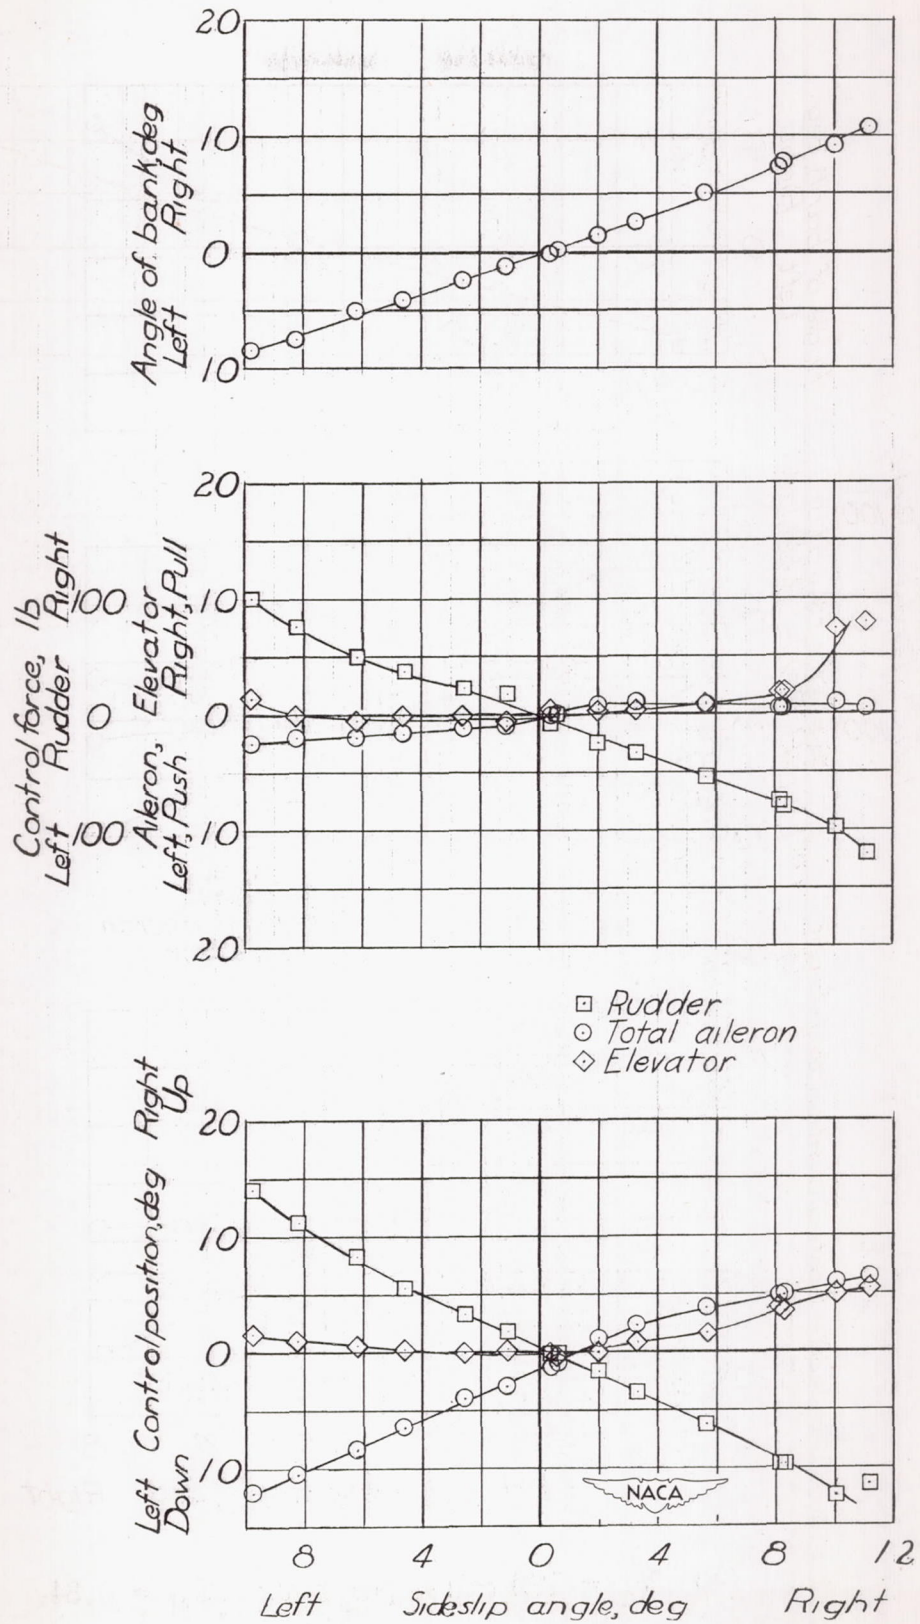 20
10
0
10
Angle of bank, deg
Left Right
20
10
0
10
20
100
0
100
Control force, lb
Left Rudder Right
Aileron, Elevator
Left, Push Right, Pull
Rudder
Total aileron
Elevator
20
10
0
10
Left Control position, deg Right
Down Up
NACA
8 4 0 4 8 12
Left Sideslip angle, deg Right